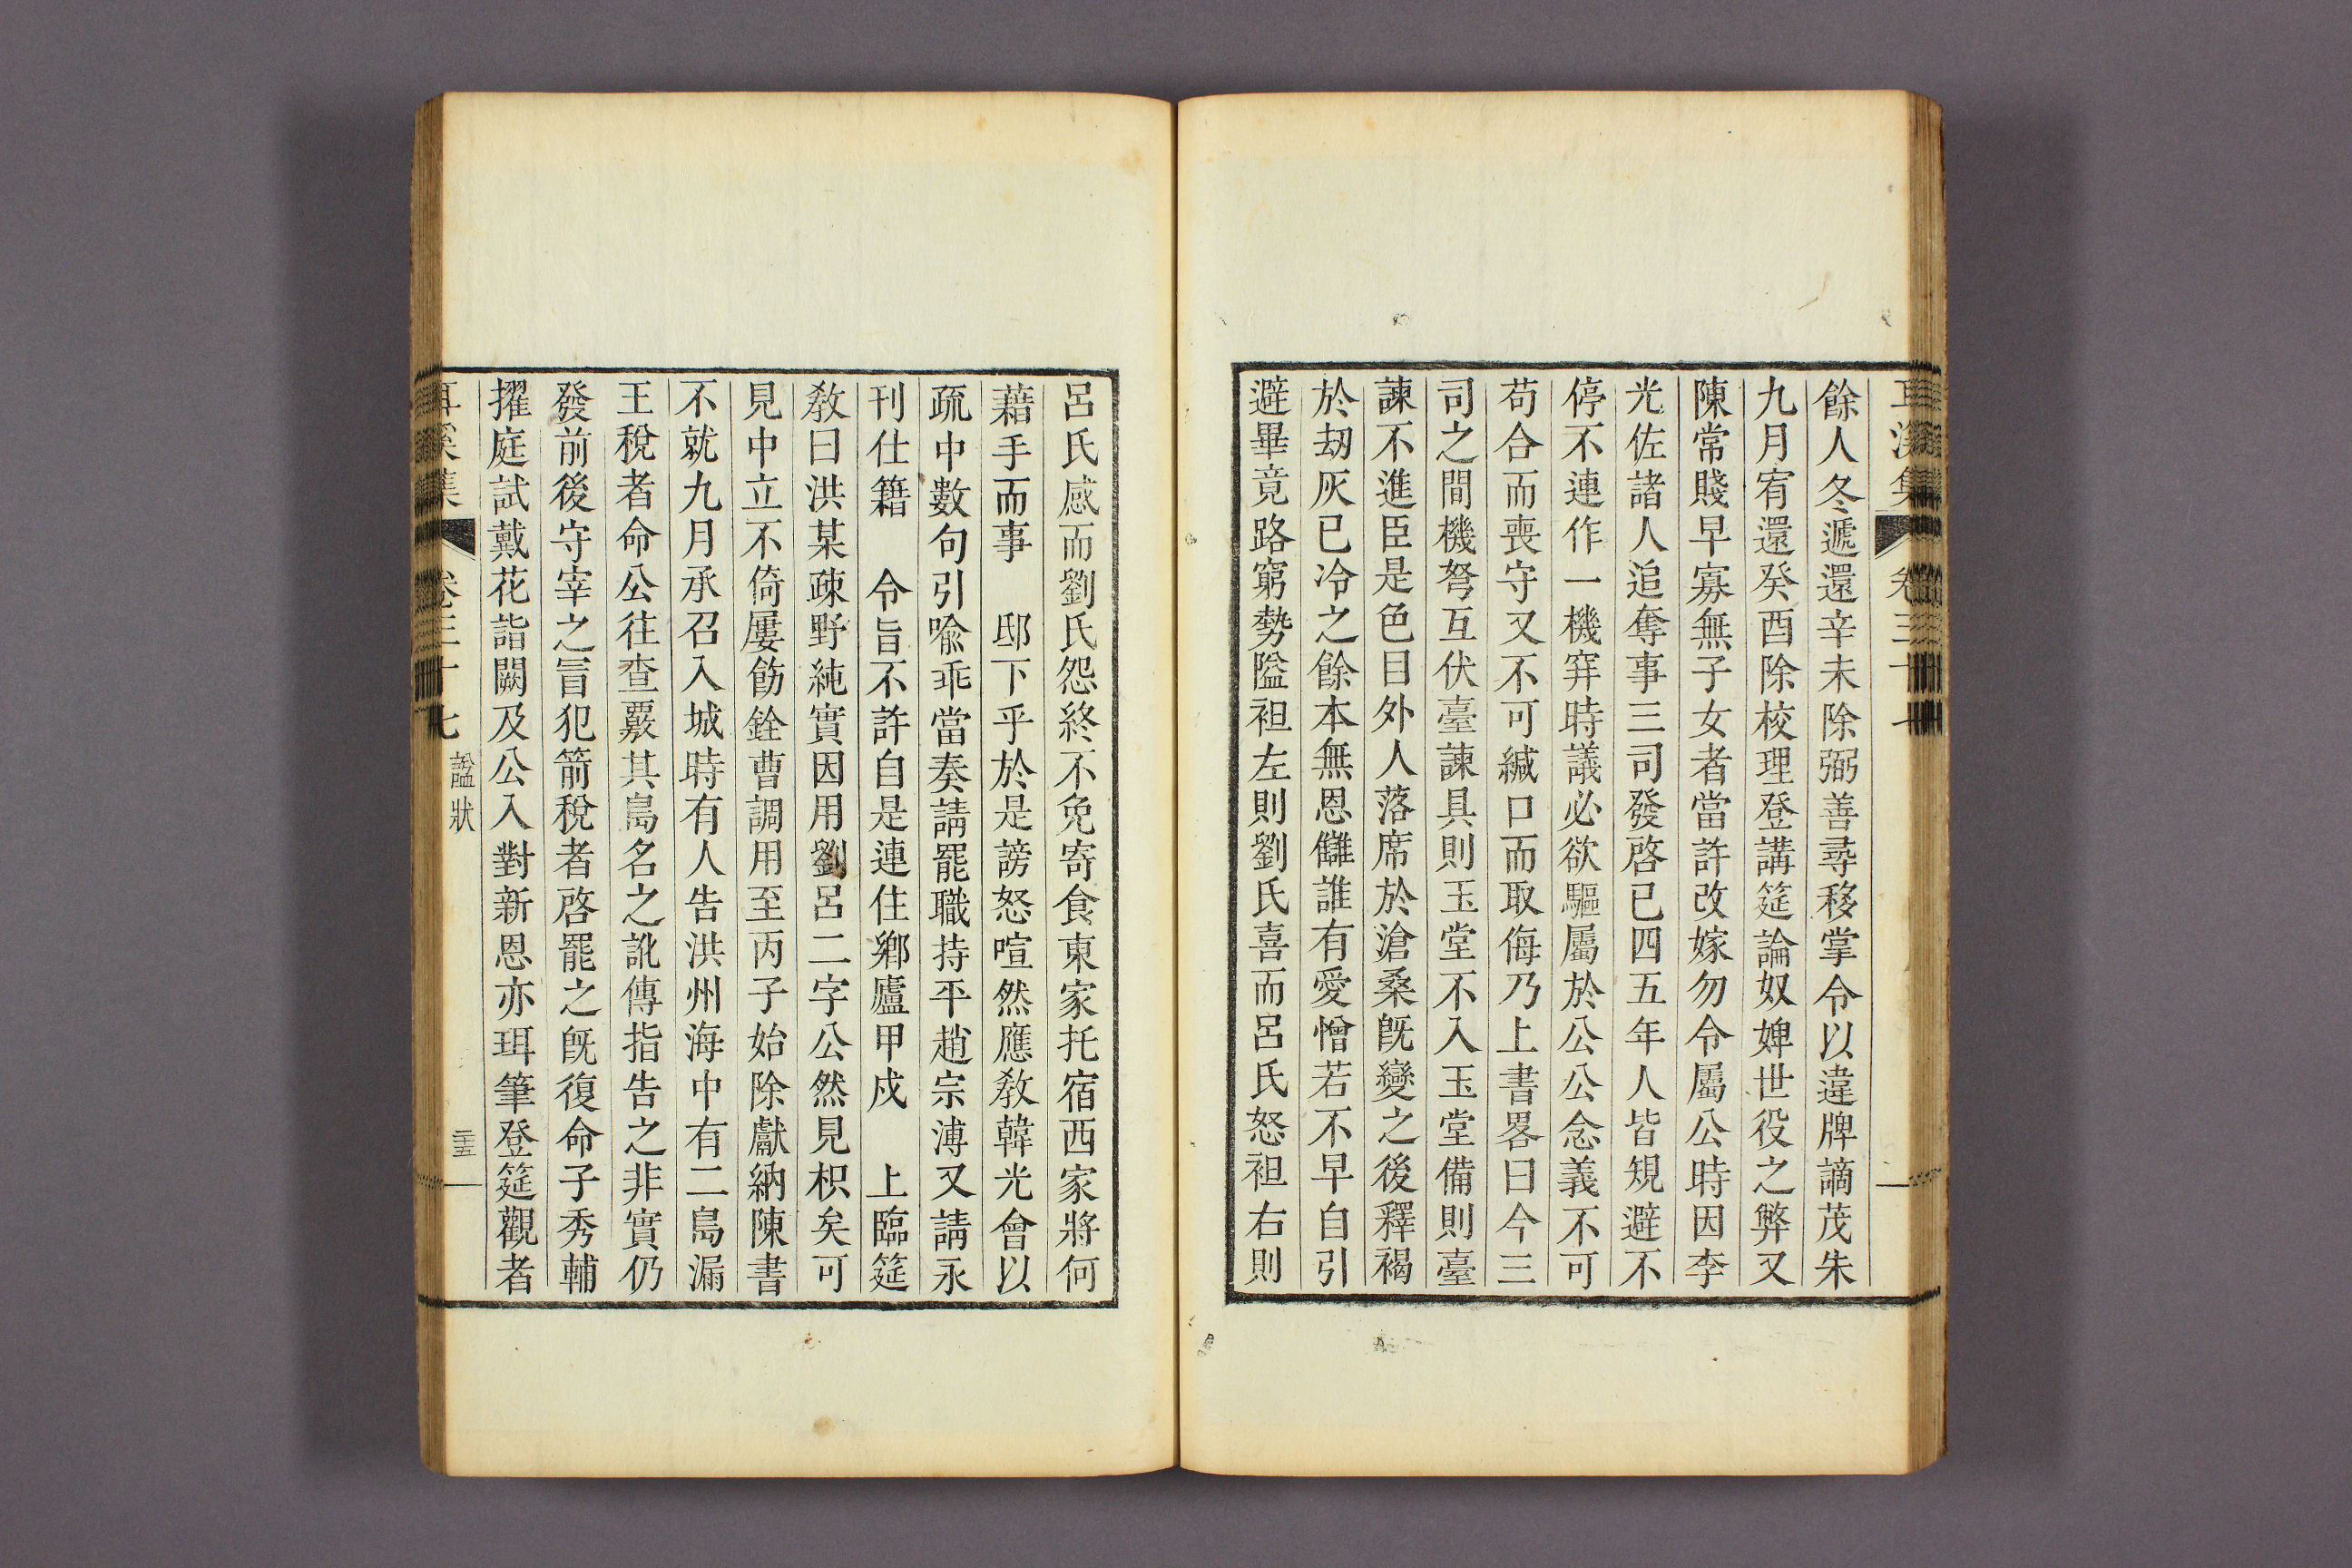 耳溪集 卷三十七
餘人冬遞還辛未除弼善尋移掌令以違牌謫茂朱
九月宥還癸酉除校理登講筵論奴婢世役之弊又
陳常賤早寡無子女者當許改嫁勿令屬公時因李
光佐諸人追奪事三司發啓已四五年人皆規避不
停不連作一機穽時議必欲驅屬於公公念義不可
苟合而喪守又不可緘口而取侮乃上書畧曰今三
司之間機弩互伏臺諫具則玉堂不入玉堂備則臺
諫不進臣是色目外人落席於滄桑旣變之後釋褐
於刼灰已冷之餘本無恩讎誰有愛憎若不早自引
避畢竟路窮勢隘袒左則劉氏喜而呂氏怒袒右則
呂氏感而劉氏怨終不免寄食東家托宿西家將何
藉手而事 邸下乎於是謗怒喧然應敎韓光會以
疏中數句引喩乖當奏請罷職持平趙宗溥又請永
刊仕籍 令旨不許自是連住鄕廬甲戌 上臨筵
敎曰洪某疎野純實因用劉呂二字公然見枳矣可
見中立不倚屢飭銓曹調用至丙子始除獻納陳書
不就九月承召入城時有人告洪州海中有二島漏
王稅者命公往查覈其島名之訛傳指告之非實仍
發前後守宰之冒犯箭稅者啓罷之旣復命子秀輔
擢庭試戴花詣闕及公入對新恩亦珥筆登筵觀者
耳溪集 卷三十七 諡狀 二十五